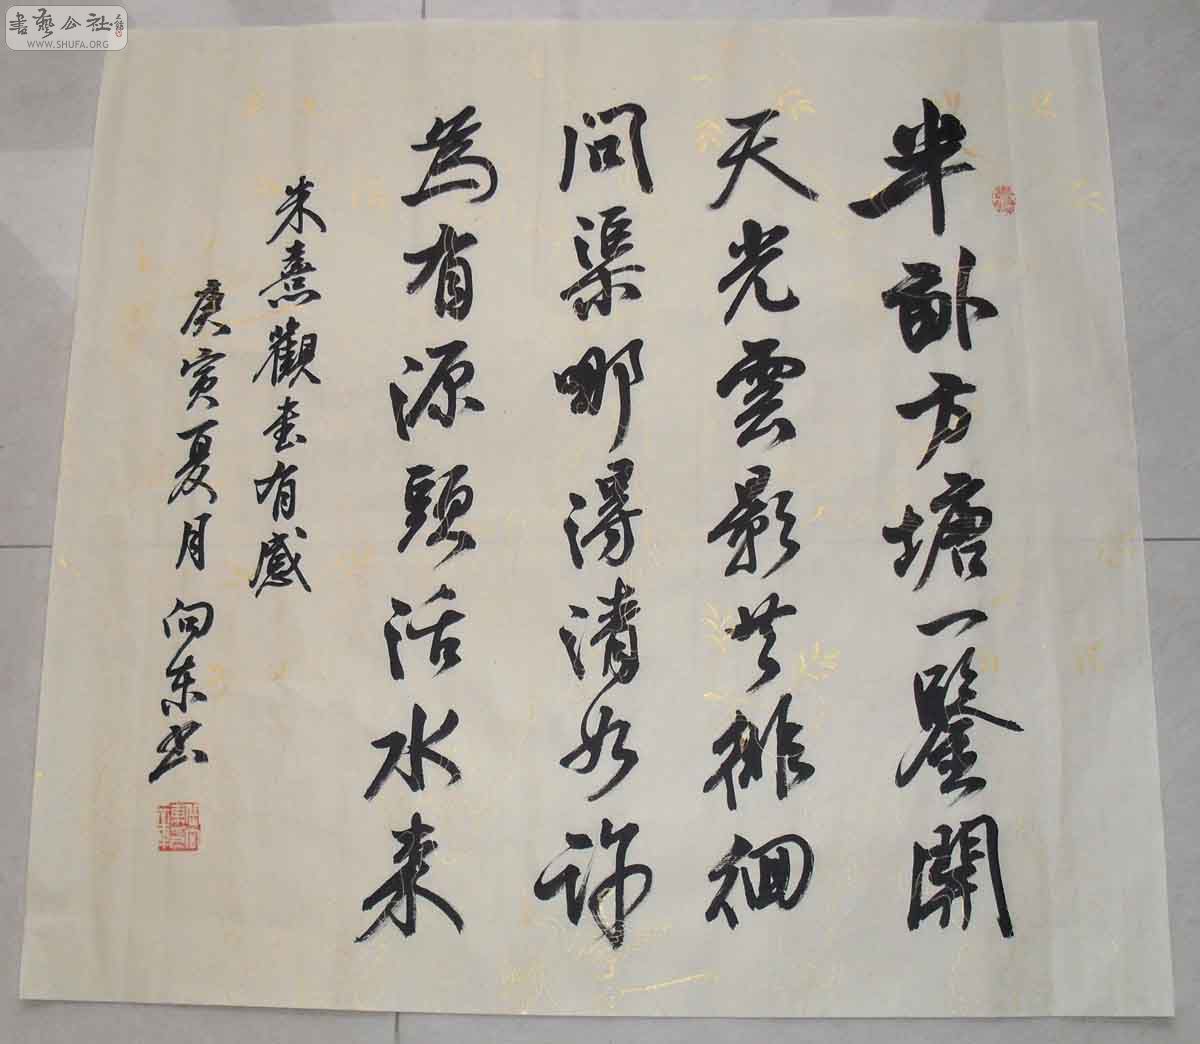 半畝方塘一鑒開
天光雲影共徘徊
問渠哪得清如許
為有源頭活水来
朱熹觀書有感
庚寅夏月 向東書
書藝公社
WWW.SHUFA.ORG